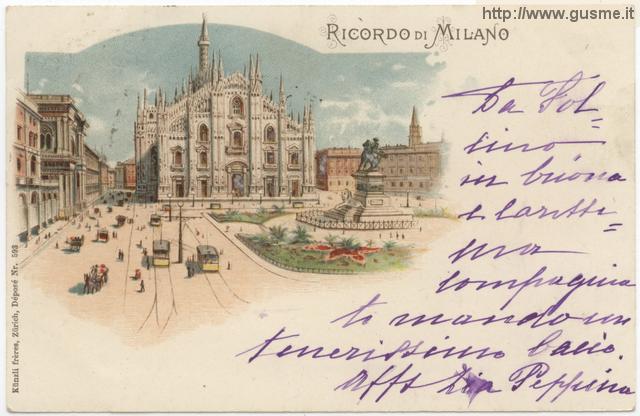 http://www.gusme.it
RICORDO DI MILANO
Da Tol=
tino
in buona
e caritti=
ma
compagnia
ti mando un
tenerissimo bacio.
Aff Zia Peppina
Künzli frères, Zürich, Déposé Nr. 593